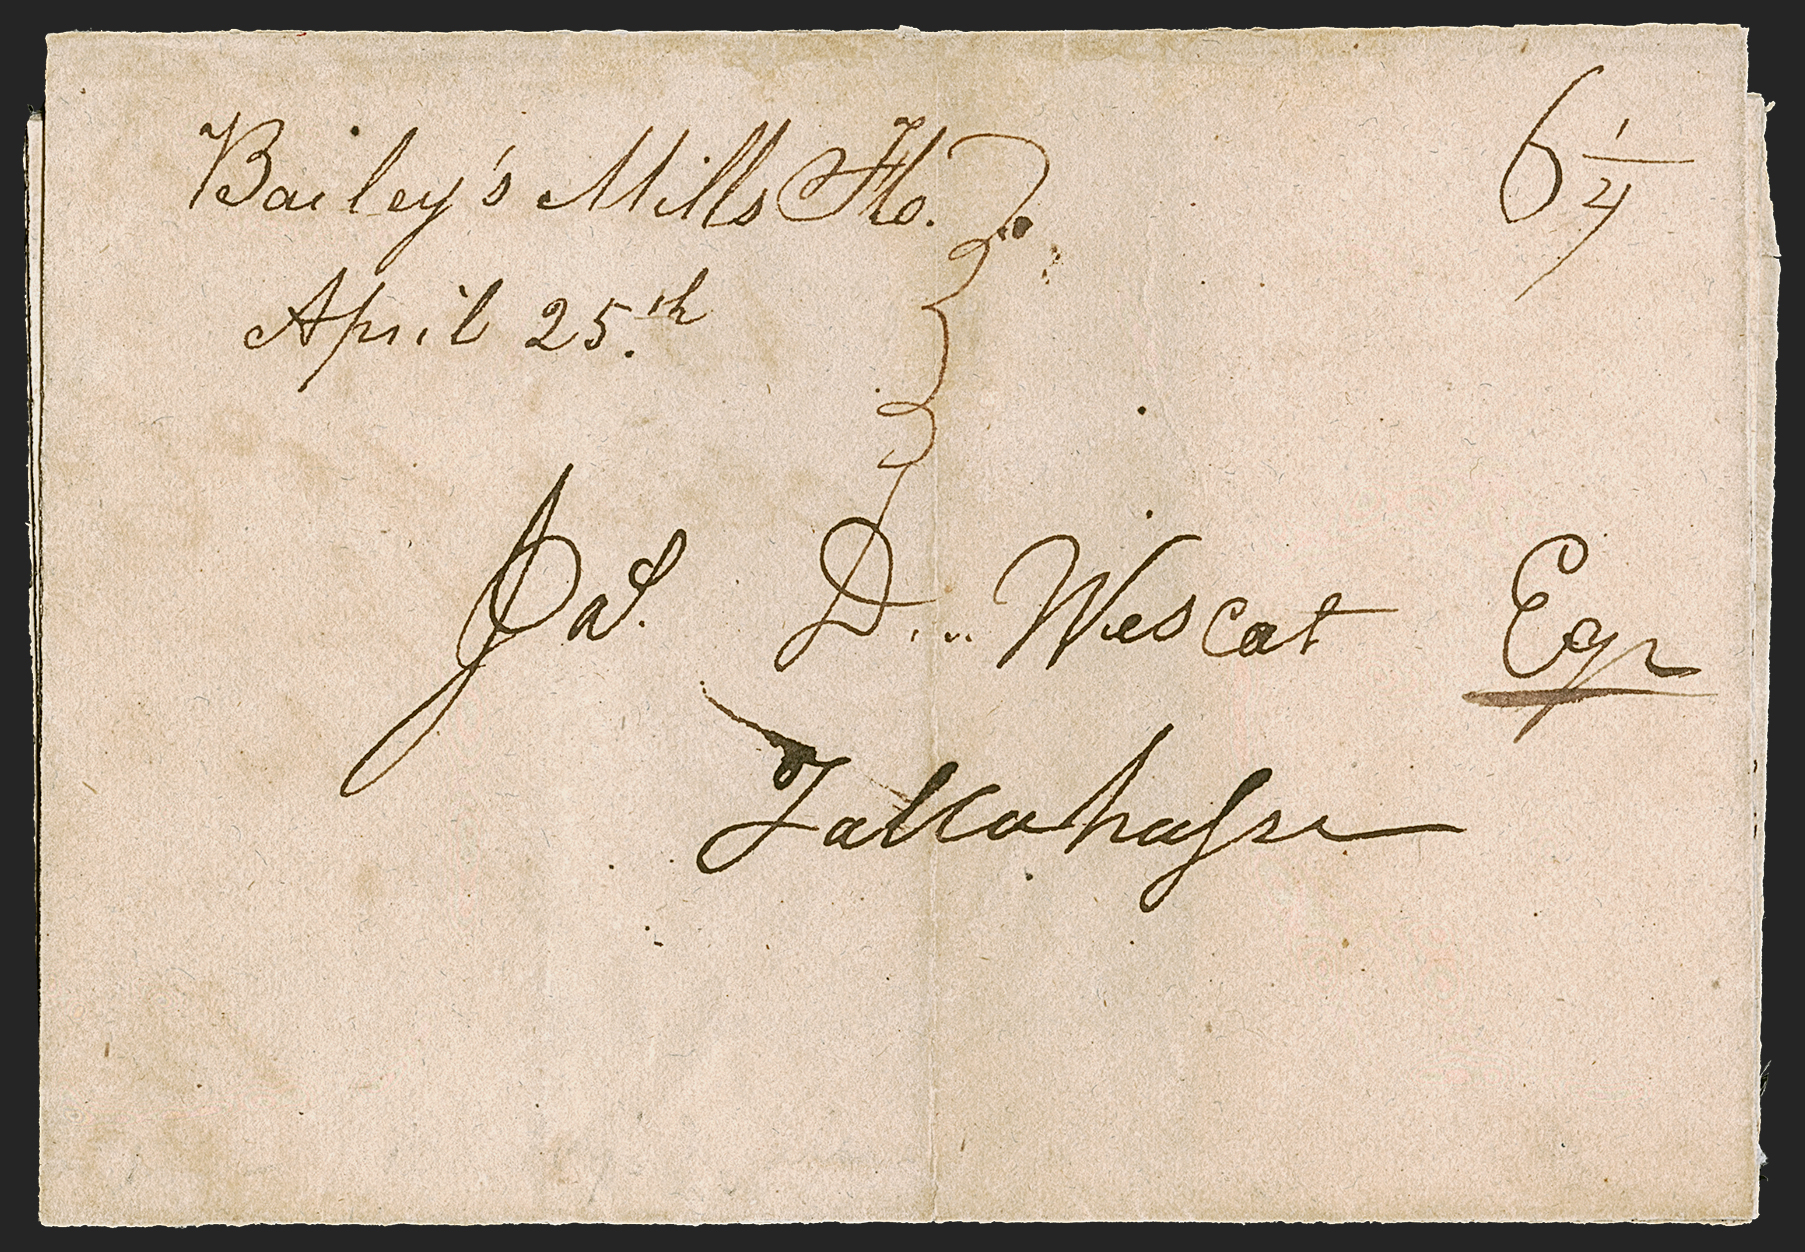 Bailey's Mills Flo.
April 25.th
6 1/4
Jas. D... Wescat Eqr
Tallahasse